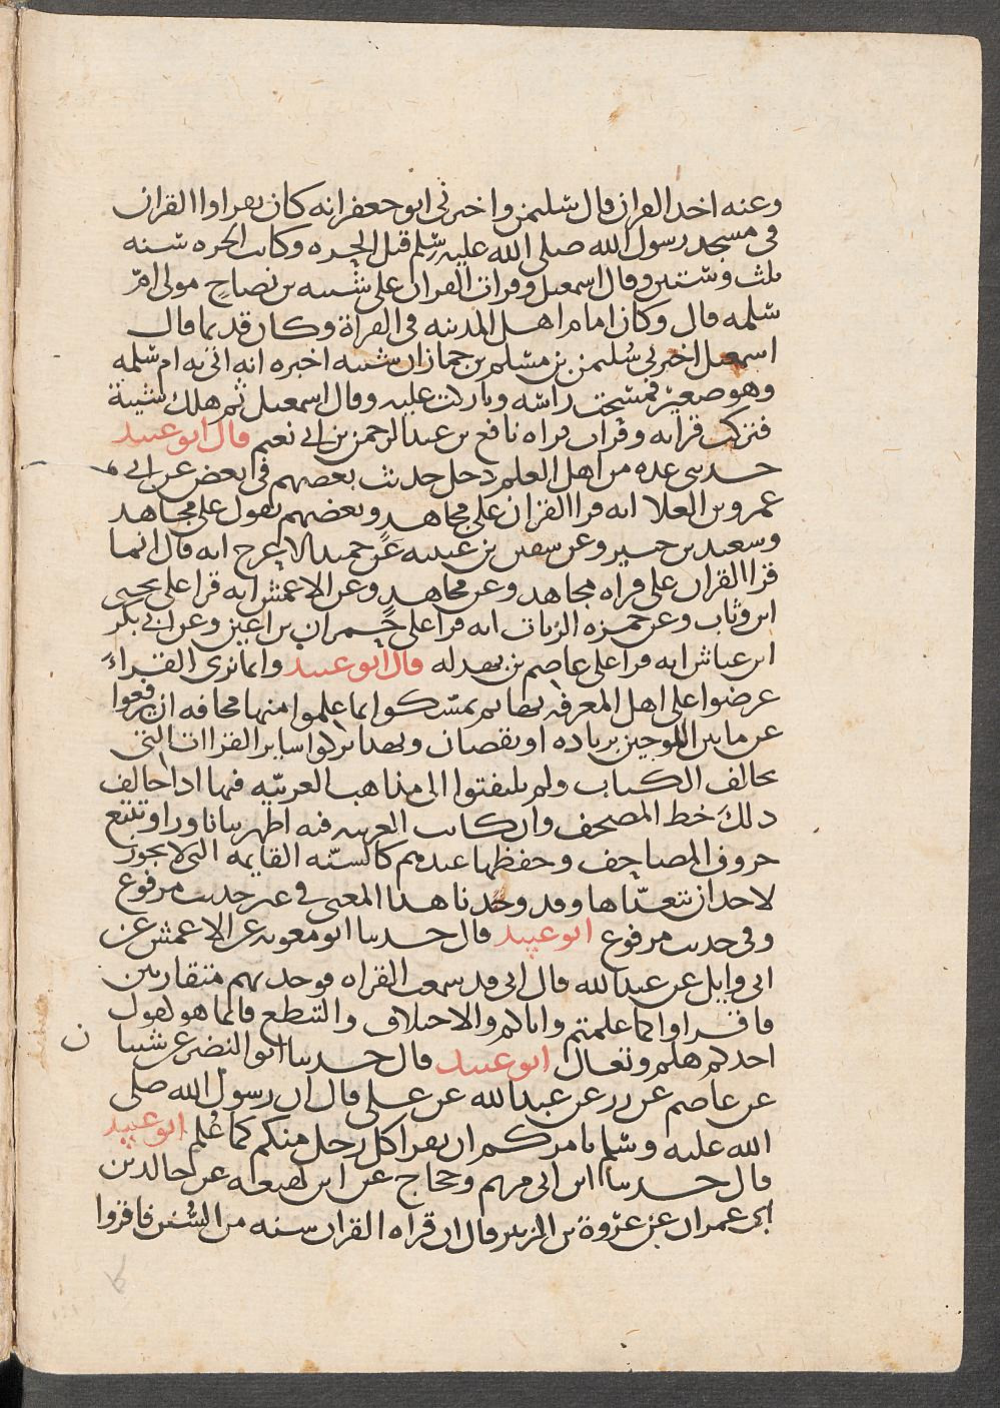 وعنه اخذ القران قال سليمن واخبرني ابو جعفر انه كان يقراوا القران
في مسجد رسول الله صلى الله عليه وسلم قبل الحره وكانت الحره سنه
ثلث وستين وقال اسمعيل وقرات القران على شيبه بن نصاح مولى امّ
سلمه قال وكان امام اهل المدينه في القراة وكان قديما قال
اسمعيل اخبرني سُليمن بن مسلم بن جماز ان شيبه اخبره انه اتي به ام سلمه
وهو صغير فمسحت راسه وباركت عليه وقال اسمعيل ثم هلك شيبة
فتركت قراته وقرات قراه نافع بن عبد الرحمن بن ابي نعيم قال ابو عبيد
حدثني عده من اهل العلم دخل حديث بعضهم في بعض عن ابي
عمرو بن العلا انه قرا القران على مجاهد وبعضهم يقول على مجاهد
وسعيد بن جبير وعن سفين بن عيينه عن حميد الاعرج انه قال انما
قرا القران على قراه مجاهد وعن مجاهد وعن الاعمش انه قرا على يحيى
ابن وثاب وعن حمزه الزيات انه قرا على حمران بن اعين وعن ابي بكر
ابن عياش انه قرا على عاصم بن بهدله قال ابو عبيد وانما نرى القراءَ
عرضوا على اهل المعرفه بها ثم تمسكوا بما علموا منها مخافه ان يرفعوا
عن ما بين اللوحين بزياده او نقصان ولهذا تركوا ساير القراات التي
تخالف الكتاب ولم يلتفتوا الى مذاهب العربيّه فيها اذا خالف
ذلك خط المصحف وان كانت العربيه فيه اظهر بيانا وراو تتبع
حروف المصاحف وحفظها عندهم كالسنّه القايمه التي لا يجوز
لاحد ان يتعدّاها وقد وجدنا هذا المعنى في غير حديث مرفوع
وفي حديث مرفوع ابو عبيد قال حدثنا ابو معويه عن الاعمش عن
ابي وايل عن عبد الله قال اني قد سمعت القراه فوجدتهم متقاربين
فاقراوا كما علمتم واياكم والاختلاف والتنطع فانما هو كقول
احدكم هلم وتعال ابو عبيد قال حدثنا ابو النضر عن شيبا ن
عن عاصم عن زر عن عبد الله عن علي قال ان رسول الله صلى
الله عليه وسلم يامركم ان يقرا كل رجل منكم كما عُلم ابو عبيد
قال حدثنا ابن ابي مريم وحجاج عن ابن لهيعه عن خالد بن
ابي عمران عن عروة بن الزبير قال ان قراه القران سنه من السُنن فاقروا